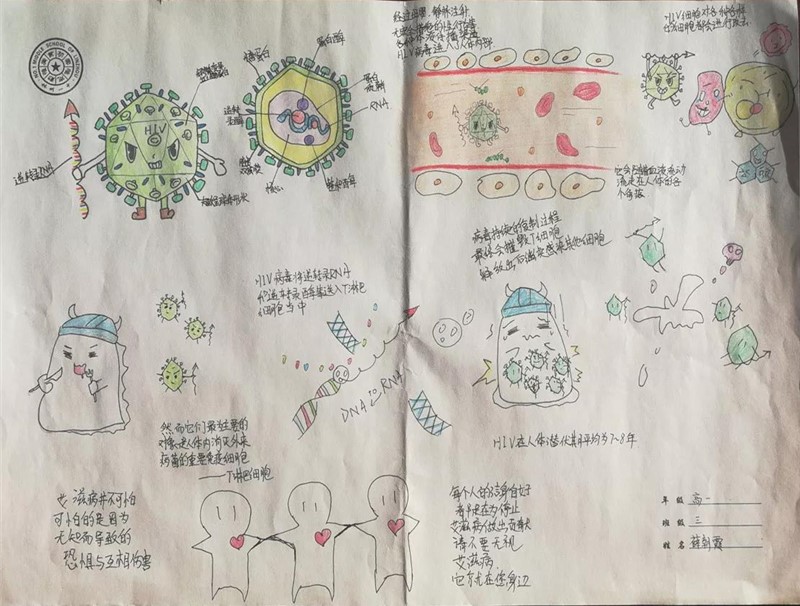 HIV
糖蛋白
蛋白酶
RNA
核心
逆转录RNA
HIV病毒进入了人体内部
HIV细胞对各种各样
的细胞都会进行攻击
它会随血液流动
流走在人体的各
个角落
病毒持续的复制过程
最终会摧毁T细胞
释放出后继续感染其他细胞
HIV病毒将逆转录RNA
和逆转录酶等送入T淋巴
细胞当中
DNA
RNA
然而它们最主要的
对象是人体内消灭外来
病菌的重要免疫细胞
——T淋巴细胞
HIV在人体潜伏期平均为7~8年
艾滋病并不可怕
可怕的是因为
无知而导致的
恐惧与互相伤害
每个人的洁身自好
都是在为停止
艾滋病做出贡献
请不要无视
艾滋病
它就在你身边
年 级 高一
班 级 三
姓 名